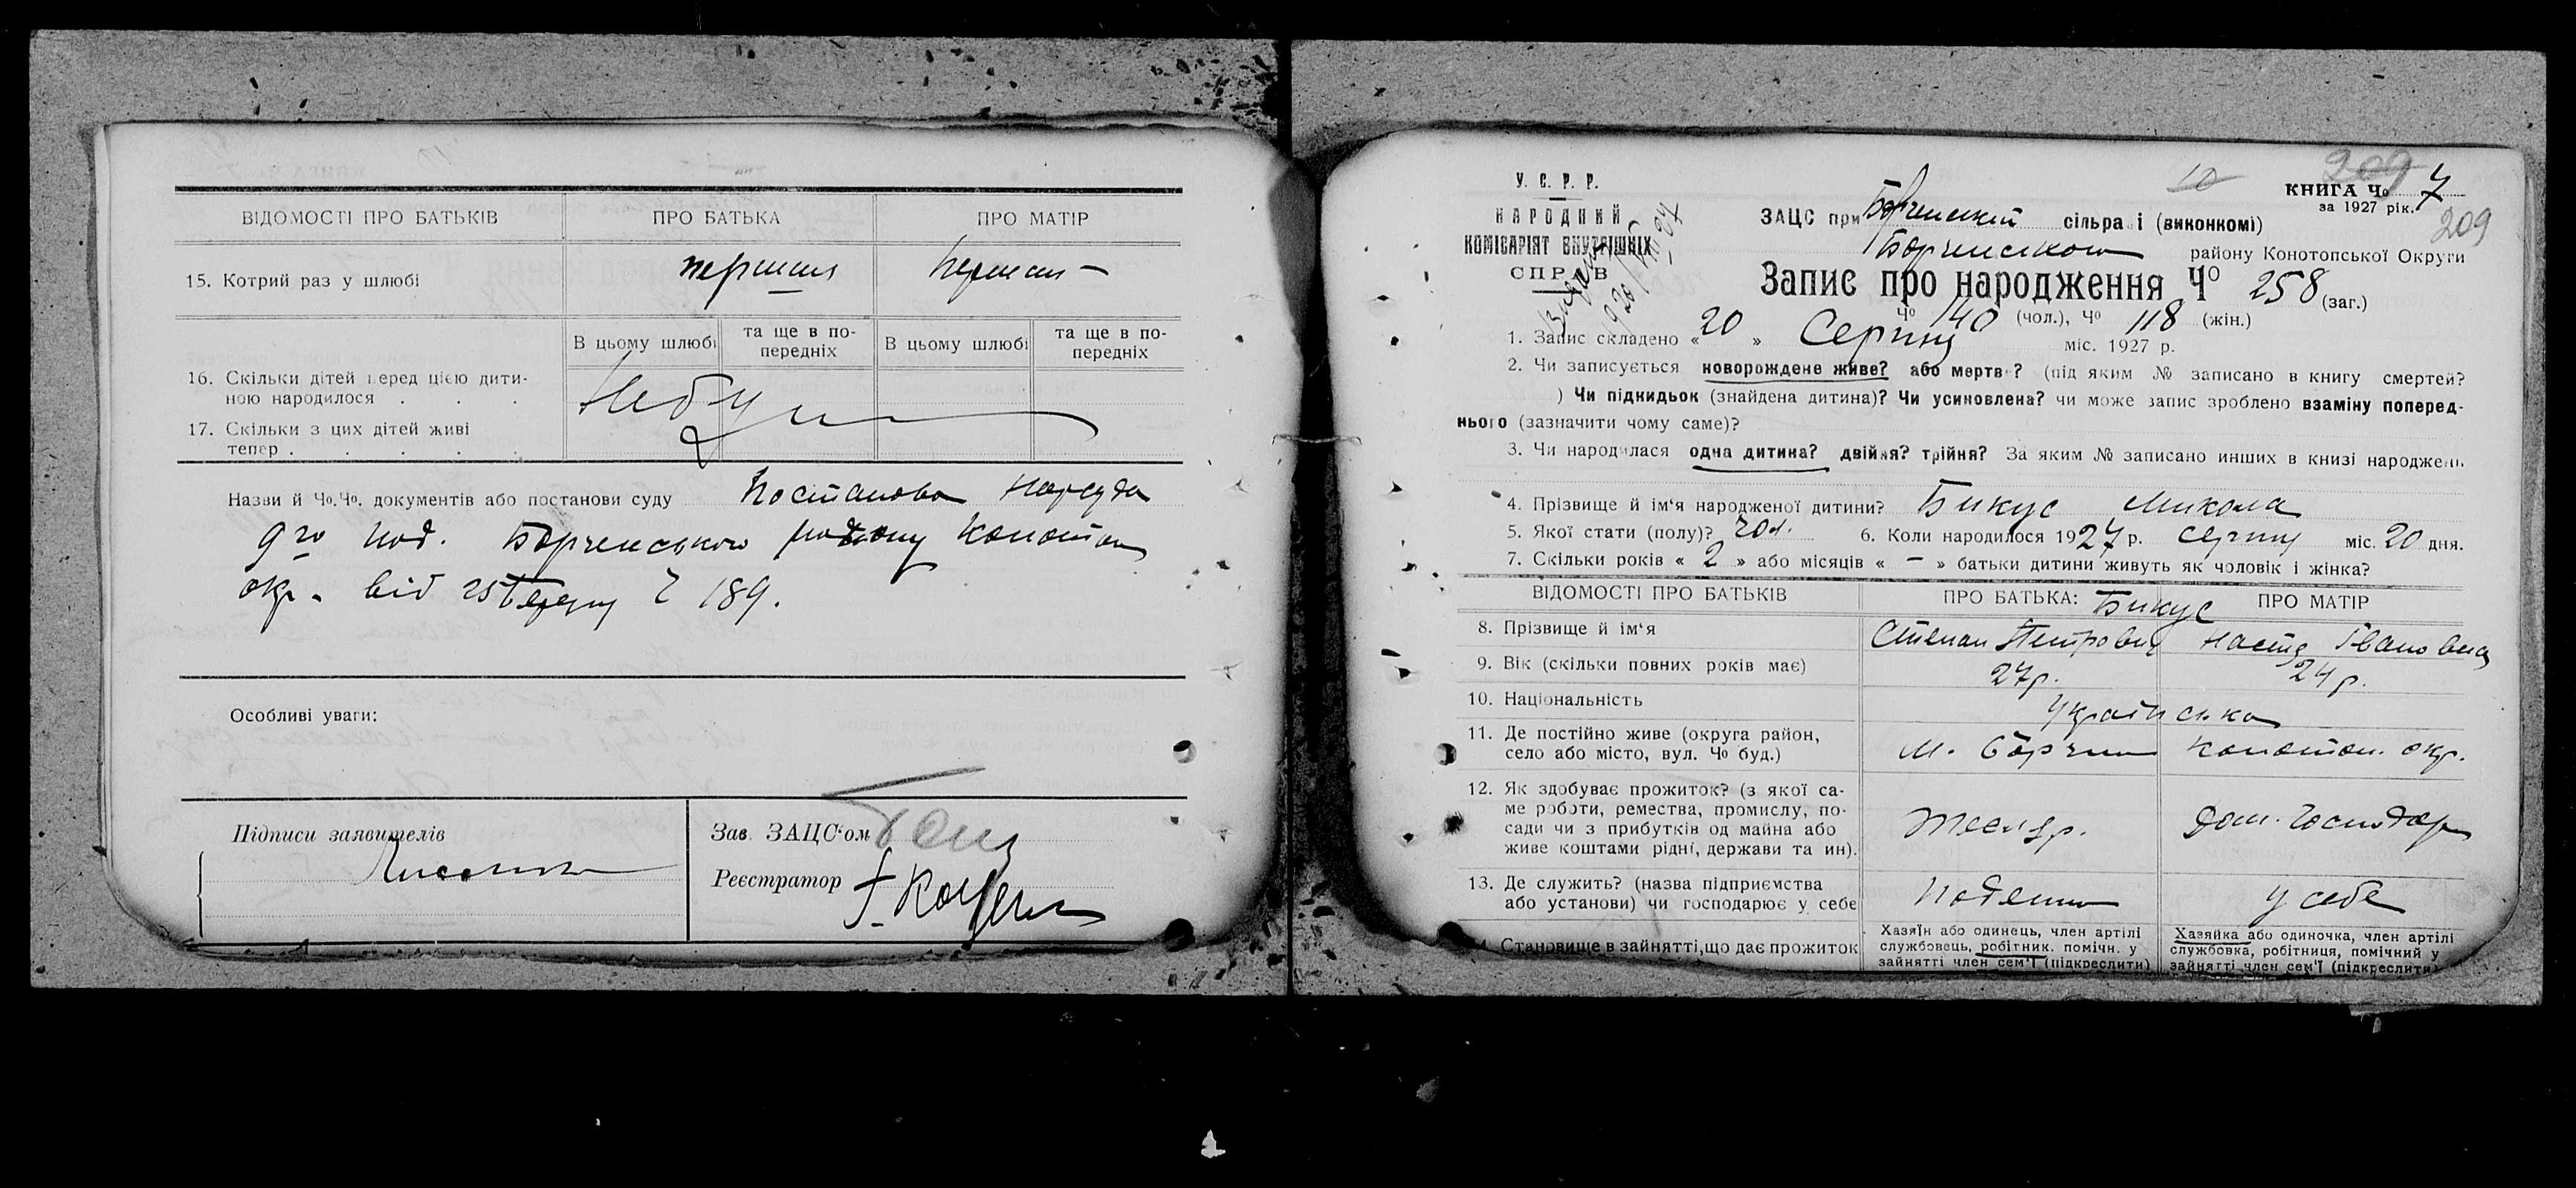 ВІДОМОСТІ ПРО БАТЬКІВ ПРО БАТЬКА ПРО МАТІР
15. Котрий раз у шлюбі перший перший –
В цьому шлюбі та ще в по-передніх В цьому шлюбі та ще в по-передніх
16. Скільки дітей перед цією дити-
ною народилося . . .
17. Скільки з цих дітей живі
тепер . . . . .
Не було
Назви й Чо.Чо. документів або постанови суду Постанова Нарсуда
9го Борзенського району Конотоп
окр. від 25 189.
Особливі уваги:
Підписи заявителів
Зав. ЗАЦС'ом
Реєстратор
У. С. Р. Р.
НАРОДНИЙ
КОМІСАРІЯТ ВНУТРІШНІХ
СПРАВ
10 209
КНИГА Чо 7
за 1927 рік.
209
ЗАЦС при Борзенській сільраді (виконкомі)
Борзенського району Конотопської Округи
Запис про народження Чо 258 (заг.)
Чо 140 (чол.), Чо 118 (жін.)
1. Запис складено « 20 » Серпня міс. 1927 р.
2. Чи записується новорождене живе? або мертве? (під яким № записано в книгу смертей?
) Чи підкидьок (знайдена дитина)? Чи усиновлена? чи може запис зроблено взаміну поперед-
нього (зазначити чому саме)?
3. Чи народилася одна дитина? двійня? трійня? За яким № записано инших в книзі народжень
4. Прізвище й ім'я народженої дитини? Бикус Микола
5. Якої стати (полу)? чол. 6. Коли народилося 1927 р. серпня міс. 20 дня.
7. Скільки років « 2 » або місяців « – » батьки дитини живуть як чоловік і жінка?
ВІДОМОСТІ ПРО БАТЬКІВ ПРО БАТЬКА: Бикус ПРО МАТІР
8. Прізвище й ім'я Степан Петрович Настя Івановна
9. Вік (скільки повних років має) 27 р. 24 р.
10. Національність Українська
11. Де постійно живе (округа район,
село або місто, вул. Чо буд.) м. Борзна Конотоп. окр.
12. Як здобуває прожиток? (з якої са-
ме роботи, ремества, промислу, по-
сади чи з прибутків од майна або
живе коштами рідні, держави та ин). Дом. господар
13. Де служить? (назва підприємства
або установи) чи господарює у себе Поденно у себе
Становище в зайнятті, що дає прожиток
Хазяїн або одинець, член артілі
службовець, робітник. помічн. у
зайнятті член сем'ї (підкреслити)
Хазяйка або одиночка, член артілі
службовка, робітниця, помічний у
зайнятті член сем'ї (підкреслити)